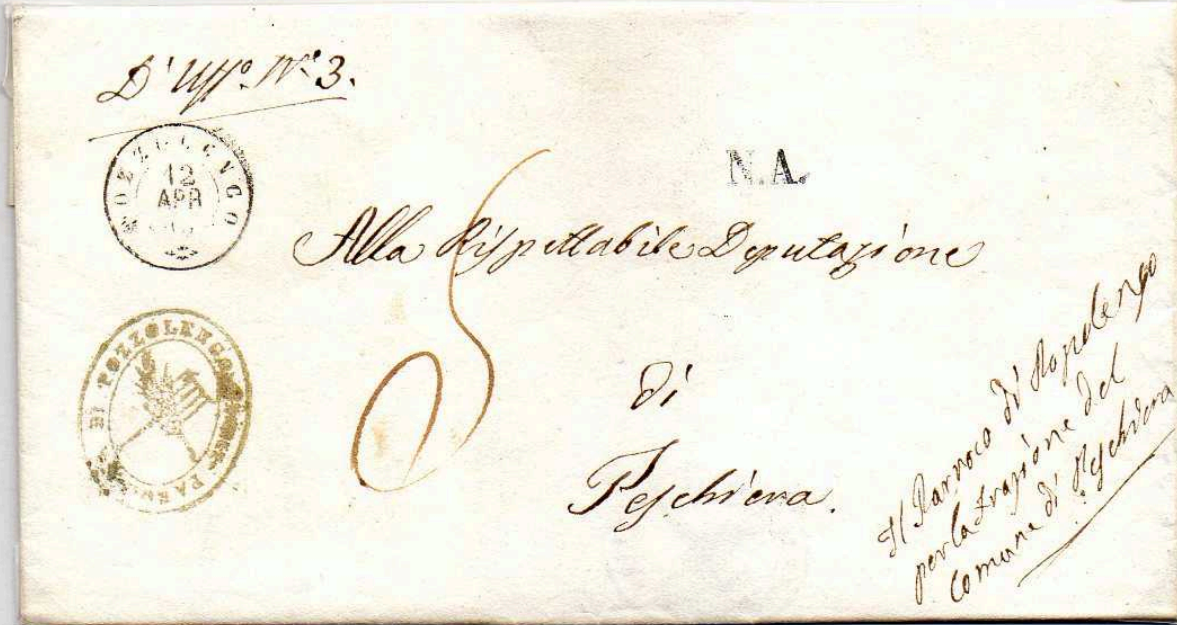 D' Uff.º Nº 3.
POZZOLENGO
12
APR
N.A.
Alla Rispettabile Deputazione
di
Peschiera.
DI POZZOLENGO
Il Parroco di Pozzolengo
per la Frazione del
Comune di Peschiera